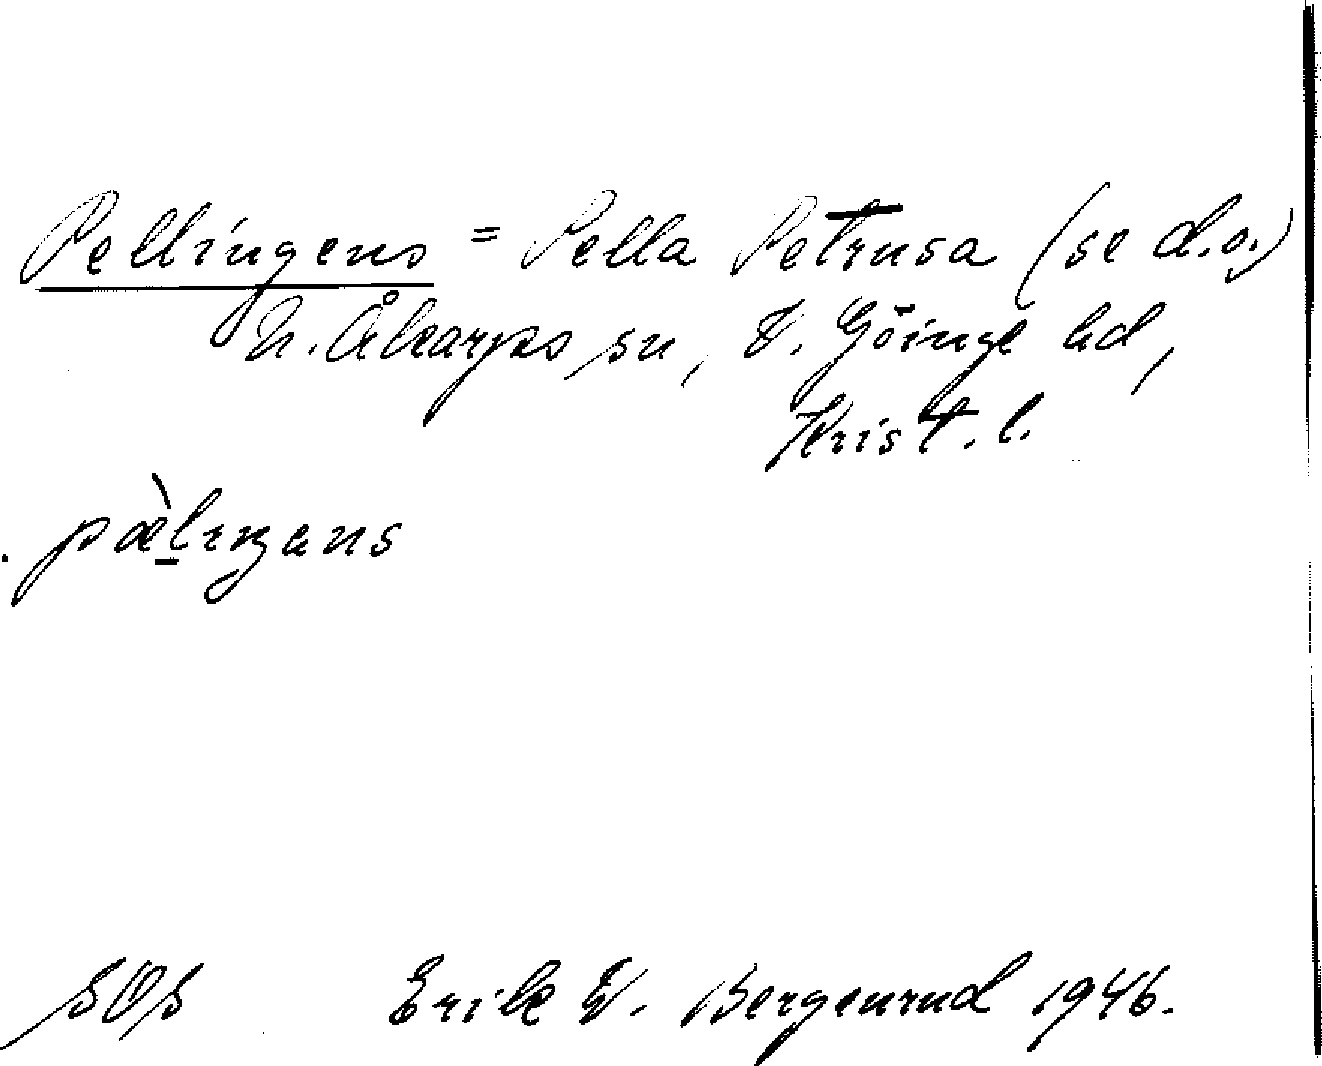 Pellingens = Pella Petrusa (se d.o.)
N. Åkarps sn, V. Göinge hd,
Krist. l.
pæ̀lɪŋans
SOS Erik W. Bergenrud 1946.